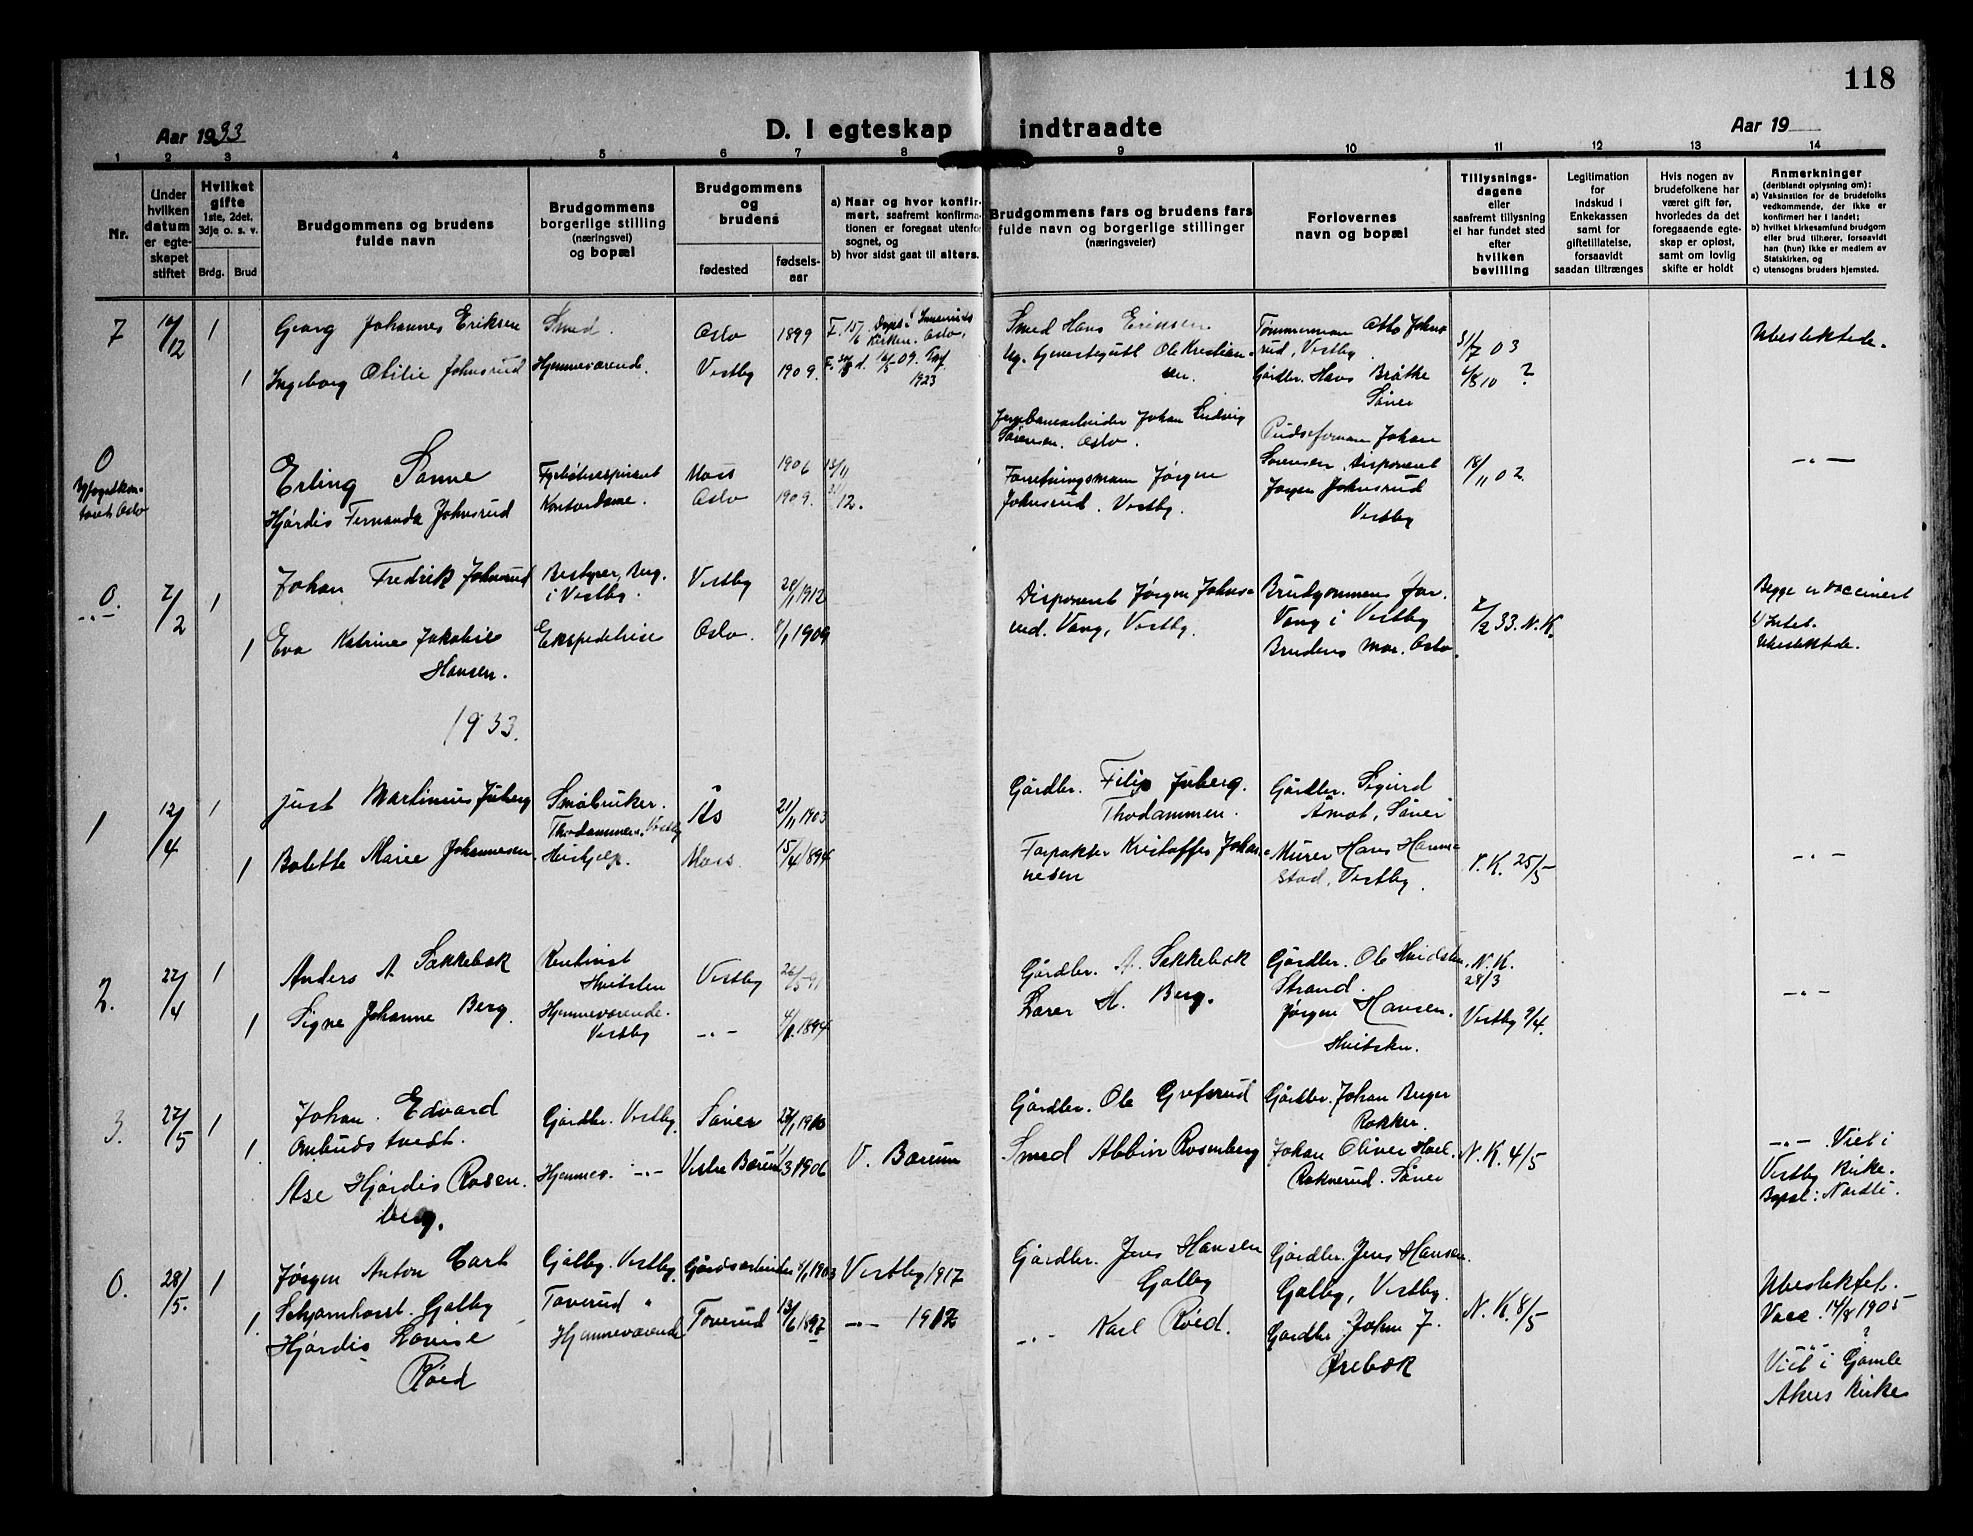 118
Aar 1933
D. I egteskap indtraadte
Aar 19
1 2 3 4 5 6 7 8 9 10 11 12 13 14
Nr.
Under
hvilken
datum
er egte-
skapet
stiftet
Hvilket
gifte
1ste, 2det,
3dje o. s. v.
Brdg. Brud
Brudgommens og brudens
fulde navn
Brudgommens
borgerlige stilling
(næringsvei)
og bopæl
Brudgommens
og
brudens
fødested
fødsels-
aar
a) Naar og hvor konfir-
mert, saafremt konfirma-
tionen er foregaat utenfor
sognet, og
b) hvor sidst gaat til alters.
Brudgommens fars og brudens fars
fulde navn og borgerlige stillinger
(næringsveier)
Forlovernes
navn og bopæl
Tillysnings-
dagene
eller
saafremt tillysning
ei har fundet sted
efter
hvilken
bevilling
Legitimation
for
indskud i
Enkekassen
samt for
giftetillatelse,
forsaavidt
saadan tiltrænges
Hvis nogen av
brudefolkene har
været gift før,
hvorledes da det
foregaaende egte-
skap er opløst,
samt om lovlig
skifte er holdt
Anmerkninger
(deriblandt oplysning om):
a) Vaksinstion for de brudefolks
vedkommende, der ikke er
konfirmert her i landet;
b) hvilket kirkesamfund brudgom
eller brud tilhører, forsaavidt
han (hun) ikke er medlem av
Statskirken, og
c) utensogns bruders hjemsted.
7 1 Georg Johannes Eriksen Smed. Oslo 1899
Smed Hans Eriksen Tømmermann Otto Johns-
rud, Vestby. 31/7 03 Ubeslektede.
1 Ingeborg Otilie Johnsrud Hjemmeværende. Vestby 1909.
1923
Ole Kristian-
sen. Gårdbr. Hans Bråtke
Såner 10 ?
0
Oslo
Erling Sanne Moss 1906
Johan Ludvig
Sørensen. Oslo. Johan
Sørensen, Disponent 18/11 02. -"-
Hjørdis Fernanda Johnsrud Kontordame. Oslo 1909. 12.
Forretningsmann Jørgen
Johnsrud. Vestby. Jørgen Johnsrud
Vestby
0. -"- 2/2 1 Johan Fredrik Johnsrud Bestyrer, Berg.
i Vestby. Vestby 1912
Disponent Jørgen Johns-
rud. Vang, Vestby. Brudgommens far.
Vang i Vestby 2/2 33. N.K. Begge er vaccinert
1 Eva Katrine Jakobie
Hansen. Ekspeditrise Oslo. 1909
Brudens mor. Oslo.
Ubeslektede.
1933.
1 12/4 1 Just Martinius Juberg Småbruker.
Thodammen, Vestby Ås 21/11 1903
Gårdbr. Filip Juberg.
Thodammen. Gårdbr. Sigurd
Åmot, Såner
1 Bolette Marie Johannesen Hushjelp. Moss 15/4 1894
Forpakter Kristoffer Johan-
nesen Murer Hans Hamme-
stad, Vestby. V.K. 25/5 -"-
2. 22/4 1 Anders A Sakkebæk
Hvitsten Vestby 26/5-91
Gårdbr. A. Sakkebæk Gårdbr. Ole Hvidsten
Strand. N.K.
28/3 -"-
1 Signe Johanne Berg. Hjemmeværende.
Vestby -"- 1894
Lærer H. Berg. Jørgen Hansen.
Hvitsten. Vestby 9/4.
3. 27/5 1 Johan Edvard
Ombudstvedt. Gårdbr. Vestby. Såner 1900
Gårdbr. Ole Grefsrud Gårdbr. Johan Berger
1. Åse Hjørdis Rosen-
berg. Hjemmev. -"- Vestre Bærum 1/3 1906 V. Bærum
Smed Albin Rosenberg Johan Oliver Hoel.
Roknerud. Såner N.K. 4/5 -"- Viet i
Vestby kirke.
Bopel: Nordli.
0. 28/5. 1 Jørgen Anton Carl
Scharnhorst Galby Galby. Vestby. Gårdsarbeider 1903 Vestby 1917
Gårdbr. Jens Hansen
Galby Gårdbr. Jens Hansen
Galby, Vestby. N.K. 8/5 Ubeslektet.
Vacc. 14/8 1905
?
1. Hjørdis Lovise
Röed Taverud "
Hjemmeværende Taverud 13/6 1897 -"- 1912
-"- Karl Röed. Gårdbr. Johan J.
Ørebæk
Viet i Gamle
Akers kirke